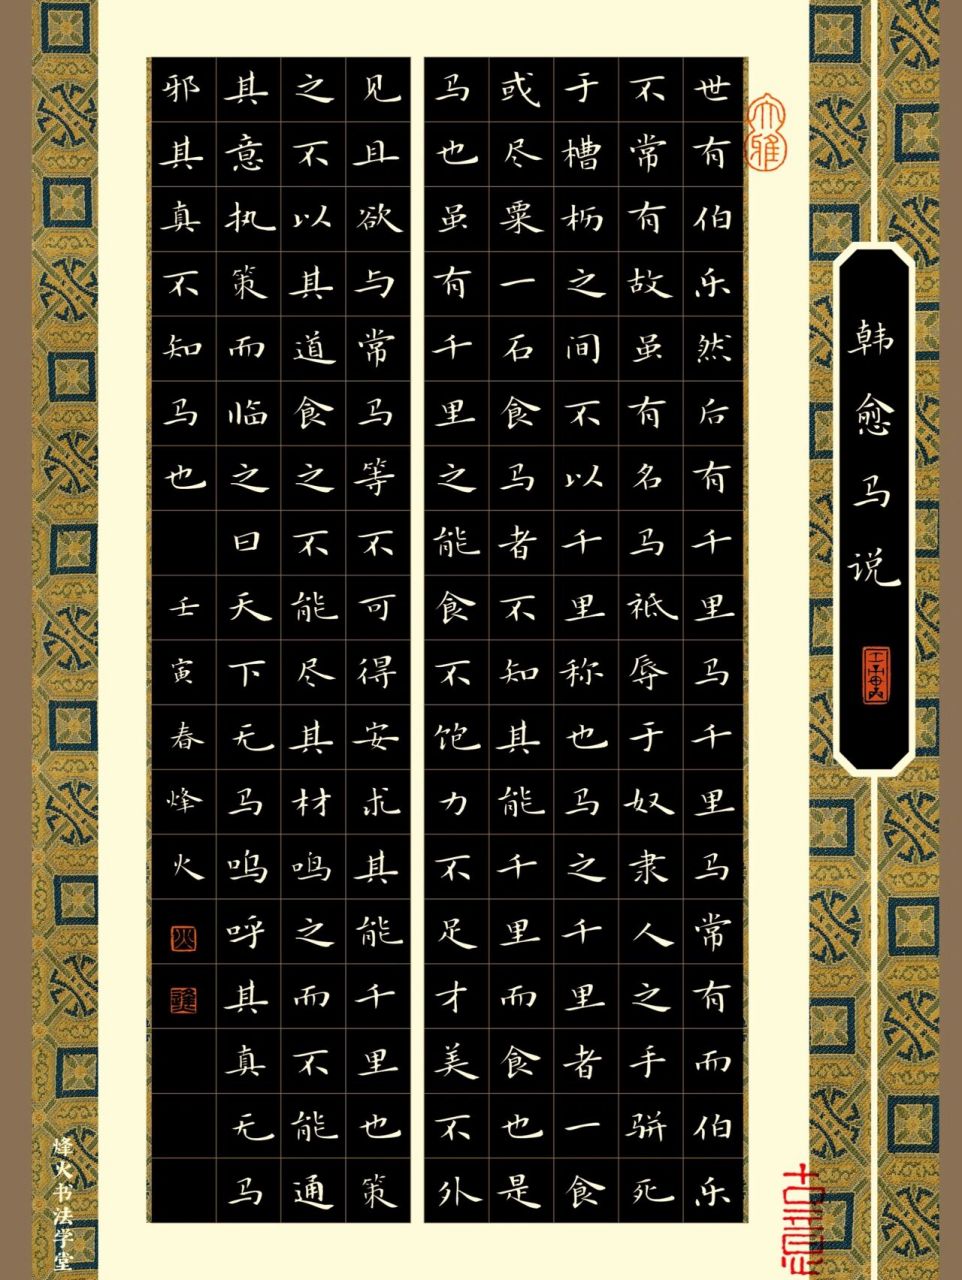 韩愈马说
壬寅
大雅
世有伯乐然后有千里马千里马常有而伯乐
不常有故虽有名马祗辱于奴隶人之手骈死
于槽枥之间不以千里称也马之千里者一食
或尽粟一石食马者不知其能千里而食也是
马也虽有千里之能食不饱力不足才美不外
见且欲与常马等不可得安求其能千里也策
之不以其道食之不能尽其材鸣之而不能通
其意执策而临之曰天下无马呜呼其真无马
邪其真不知马也 壬寅春烽火
烽火书法学堂